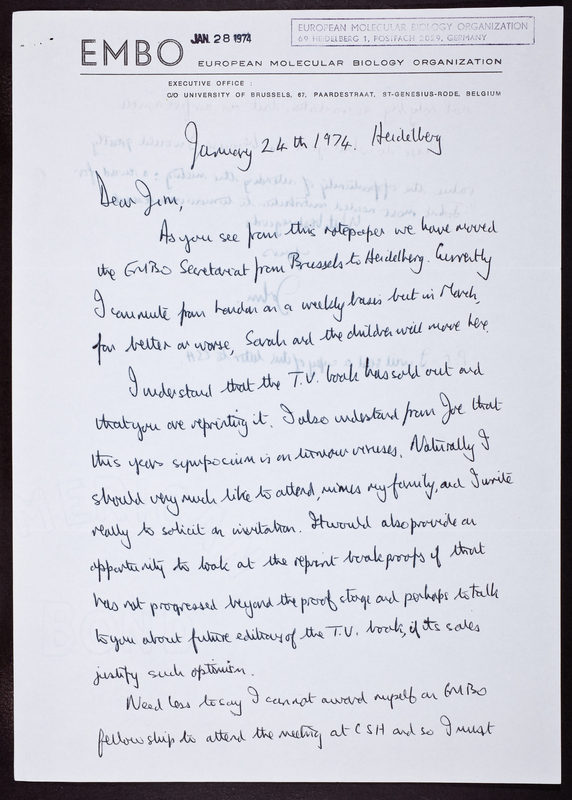 JAN. 28 1974
EUROPEAN MOLECULAR BIOLOGY ORGANIZATION
69 HEIDELBERG 1, POSTFACH 1029, GERMANY
EMBO
EUROPEAN MOLECULAR BIOLOGY ORGANIZATION
EXECUTIVE OFFICE :
C/O UNIVERSITY OF BRUSSELS, 67, PAARDESTRAAT, ST-GENESIUS-RODE, BELGIUM
January 24th 1974. Heidelberg
Dear Jim,
As you see from this notepaper we have moved
the EMBO Secretariat from Brussels to Heidelberg. Currently
I commute from London on a weekly basis but in March,
for better or worse, Sarah and the children will move here.
I understand that the T.V. book has sold out and
that you are reprinting it. I also understand from Joe that
this years symposium is on tumour viruses. Naturally I
should very much like to attend, minus my family, and I write
really to solicit an invitation. It would also provide an
opportunity to look at the reprint book proofs if that
has not progressed beyond the proof stage and perhaps to talk
to you about future editions of the T.V. book, if its sales
justify such optimism.
Need less to say I cannot award myself an EMBO
fellowship to attend the meeting at CSH and so I must